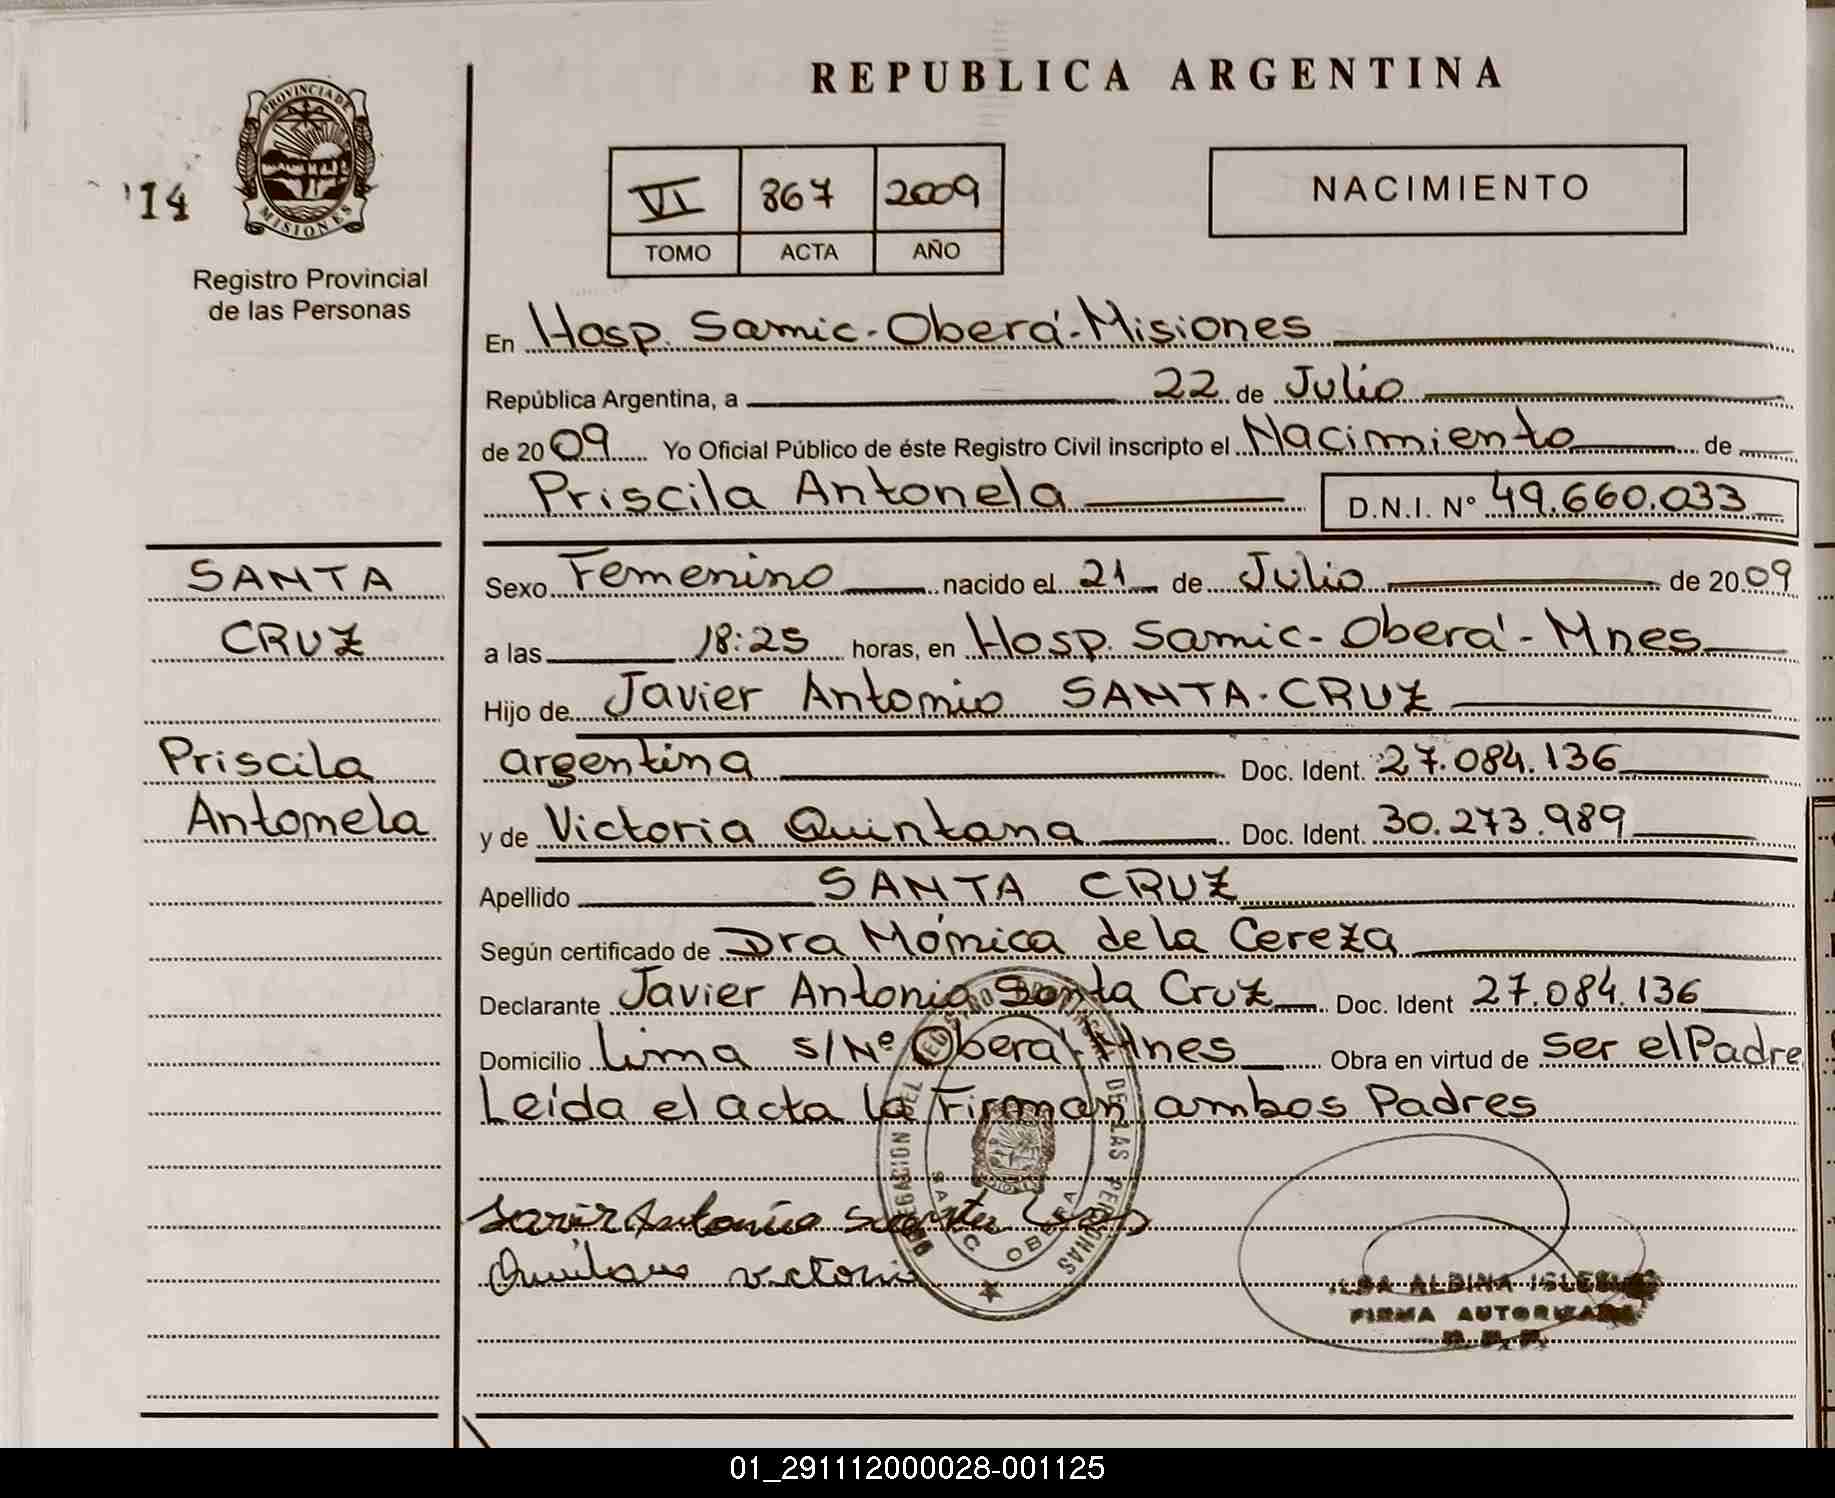 REPUBLICA ARGENTINA
PROVINCIA DE MISIONES
'14
Registro Provincial
de las Personas
VI 867 2009
TOMO ACTA AÑO
NACIMIENTO
En Hosp. Samic-Oberá-Misiones
República Argentina, a 22 de Julio
de 2009 Yo Oficial Público de éste Registro Civil inscripto el Nacimiento de
Priscila Antonela D.N.I. Nº 49.660.033
SANTA
CRUZ
Priscila
Antonela
Sexo Femenino nacido el 21 de Julio de 2009
a las 18:25 horas, en Hosp. Samic-Oberá-Mnes
Hijo de Javier Antonio SANTA-CRUZ
argentina Doc. Ident. 27.084.136
y de Victoria Quintana Doc. Ident. 30.273.989
Apellido SANTA CRUZ
Según certificado de Dra Mónica de la Cereza
Declarante Javier Antonio Santa Cruz Doc. Ident 27.084.136
Domicilio Lima s/Nº Oberá-Mnes Obra en virtud de Ser el Padre
Leída el acta la Firman ambos Padres
DELEGACION DEL REGISTRO PROVINCIAL DE LAS PERSONAS
SAMIC OBERA
Antonio Santa
Victoria
ALBINA IGLESIAS
FIRMA AUTORIZADA
01_291112000028-001125